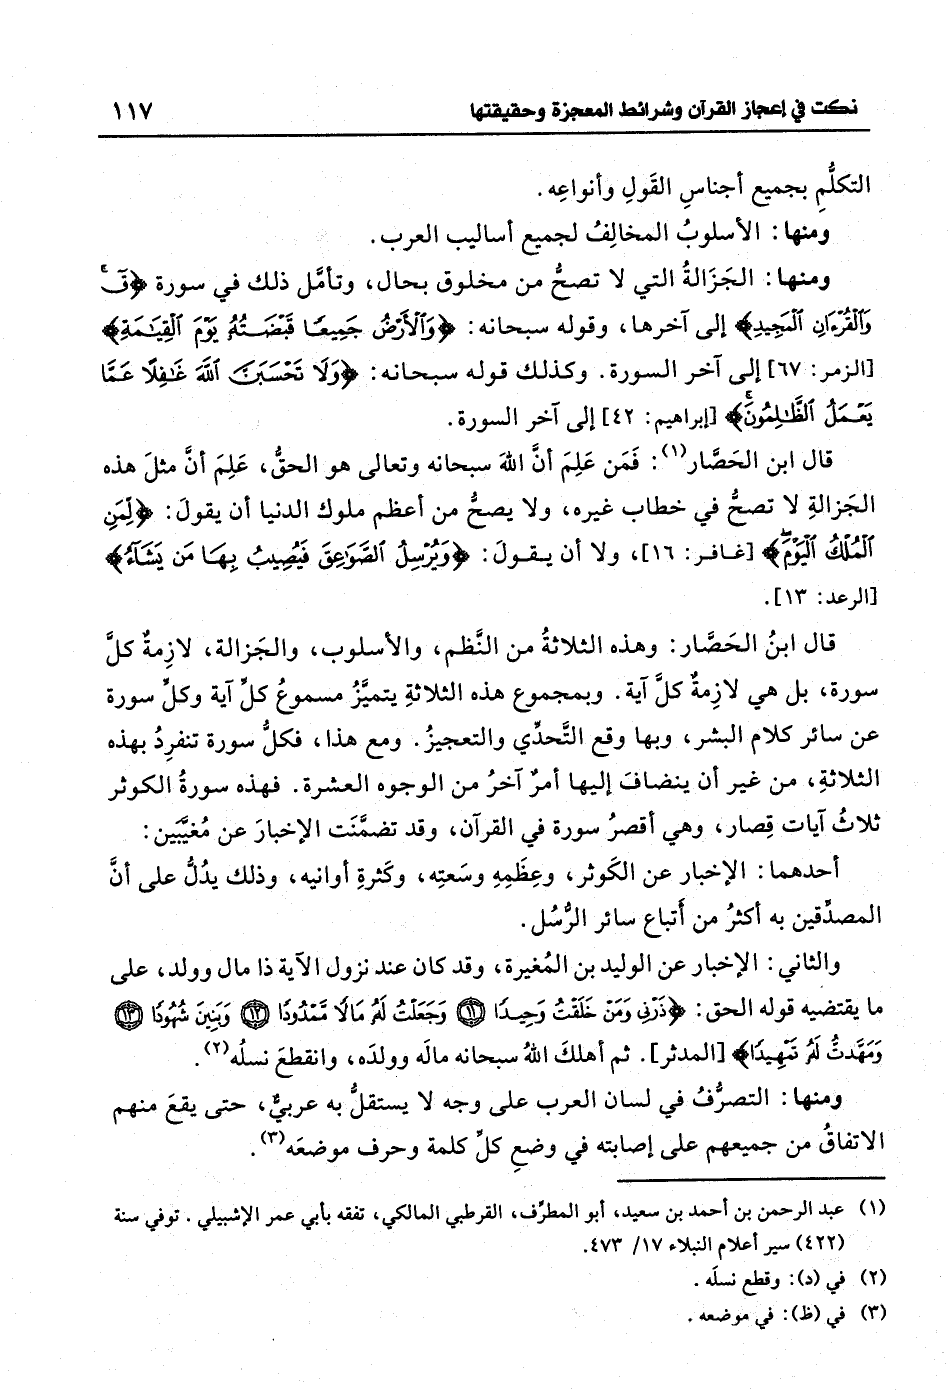 نكت في إعجاز القرآن وشرائط المعجزة وحقيقتها ١١٧
التكلُّمِ بجميع أجناسِ القَولِ وأنواعِه.
ومنها: الأسلوبُ المخالِفُ لجميع أساليب العرب.
ومنها: الجَزَالةُ التي لا تصحُّ من مخلوق بحال، وتأمَّل ذلك في سورة ﴿قٓۚ
وَٱلۡقُرۡءَانِ ٱلۡمَجِيدِ﴾ إلى آخرها، وقوله سبحانه: ﴿وَٱلۡأَرۡضُ جَمِيعٗا قَبۡضَتُهُۥ يَوۡمَ ٱلۡقِيَٰمَةِ﴾
[الزمر: ٦٧] إلى آخر السورة. وكذلك قوله سبحانه: ﴿وَلَا تَحۡسَبَنَّ ٱللَّهَ غَٰفِلًا عَمَّا
يَعۡمَلُ ٱلظَّٰلِمُونَۚ﴾ [إبراهيم: ٤٢] إلى آخر السورة.
قال ابن الحَصَّار(١): فَمَن عَلِمَ أنَّ اللهَ سبحانه وتعالى هو الحقُّ، عَلِمَ أنَّ مثلَ هذه
الجَزالةِ لا تصحُّ في خطاب غيره، ولا يصحُّ من أعظم ملوك الدنيا أن يقولَ: ﴿لِّمَنِ
ٱلۡمُلۡكُ ٱلۡيَوۡمَۖ﴾ [غافر: ١٦]، ولا أن يقولَ: ﴿وَيُرۡسِلُ ٱلصَّوَٰعِقَ فَيُصِيبُ بِهَا مَن يَشَآءُ﴾
[الرعد: ١٣].
قال ابنُ الحَصَّار: وهذه الثلاثةُ من النَّظم، والأسلوب، والجَزالة، لازِمةٌ كلَّ
سورة، بل هي لازِمةٌ كلَّ آية. وبمجموع هذه الثلاثةِ يتميَّزُ مسموعُ كلِّ آية وكلِّ سورة
عن سائر كلام البشر، وبها وقع التَّحدِّي والتعجيزُ. ومع هذا، فكلُّ سورة تنفرِدُ بهذه
الثلاثةِ، من غير أن ينضافَ إليها أمرٌ آخرُ من الوجوه العشرة. فهذه سورةُ الكوثر
ثلاثُ آيات قِصار، وهي أقصرُ سورة في القرآن، وقد تضمَّنَت الإخبارَ عن مُغيَّبَين:
أحدهما: الإخبار عن الكَوثر، وعِظَمِهِ وسَعتِه، وكَثرةِ أوانيه، وذلك يدُلُّ على أنَّ
المصدِّقين به أكثرُ من أَتباع سائر الرُّسُل.
والثاني: الإخبار عن الوليد بن المُغيرة، وقد كان عند نزول الآية ذا مال وولد، على
ما يقتضيه قوله الحق: ﴿ذَرۡنِي وَمَنۡ خَلَقۡتُ وَحِيدٗا ۝١١ وَجَعَلۡتُ لَهُۥ مَالٗا مَّمۡدُودٗا ۝١٢ وَبَنِينَ شُهُودٗا ۝١٣
وَمَهَّدتُّ لَهُۥ تَمۡهِيدٗا﴾ [المدثر]. ثم أهلكَ اللهُ سبحانه مالَه وولدَه، وانقطعَ نسلُه(٢).
ومنها: التصرُّفُ في لسان العرب على وجه لا يستقلُّ به عربيٌّ، حتى يقعَ منهم
الاتفاقُ من جميعهم على إصابته في وضعِ كلِّ كلمة وحرف موضعَه(٣).
(١) عبد الرحمن بن أحمد بن سعيد، أبو المطرِّف، القرطبي المالكي، تفقه بأبي عمر الإشبيلي. توفي سنة
(٤٢٢) سير أعلام النبلاء ١٧/ ٤٧٣.
(٢) في (د): وقطع نسلَه.
(٣) في (ظ): في موضعه.